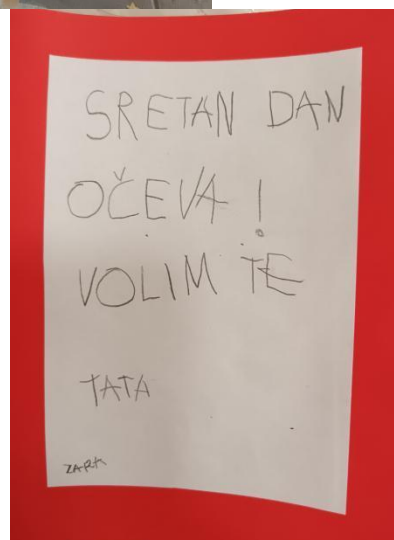 SRETAN DAN
OČEVA !
VOLIM TE
TATA
ZARA